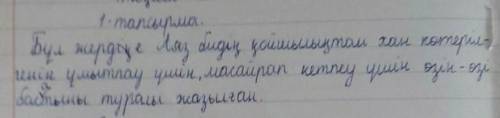 1-тапсырма.
Бұл жердіңе Аяз бидің қойшылықтан хан көтеріл-
генін ұмытпау үшін, масайрап кетпеу үшін өзін-өзі
басқаны туралы жазылған.